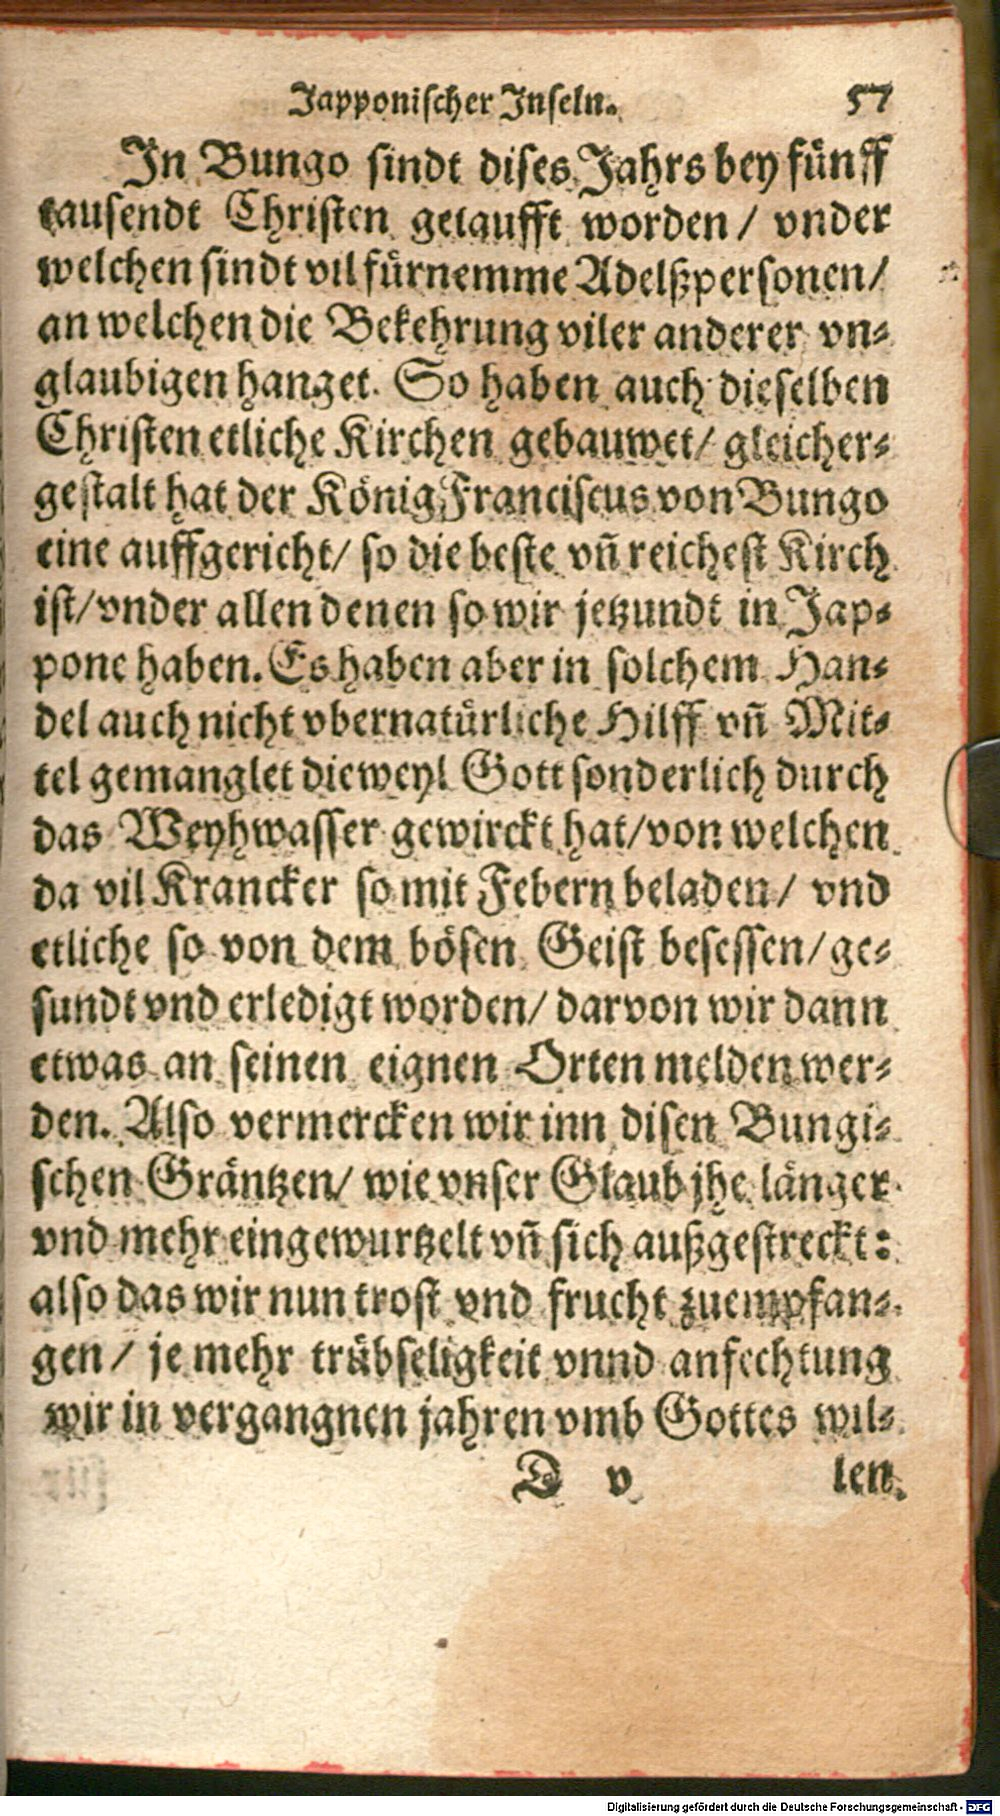 Japponischer Inseln. 57
In Bungo sindt dises Jahrs bey fünff
tausendt Christen getaufft worden / vnder
welchen sindt vil fürnemme Adelßpersonen /
an welchen die Bekehrung viler anderer vn⸗
glaubigen hanget. So haben auch dieselben
Christen etliche Kirchen gebauwet / gleicher⸗
gestalt hat der König Franciscus von Bungo
eine auffgericht / so die beste vñ reichest Kirch
ist / vnder allen denen so wir jetzundt in Jap⸗
pone haben. Es haben aber in solchem Han⸗
del auch nicht vbernatürliche Hilff vñ Mit⸗
tel gemanglet dieweyl Gott sonderlich durch
das Weyhwasser gewirckt hat / von welchen
da vil Krancker so mit Febern beladen / vnd
etliche so von dem bösen Geist besessen / ge⸗
sundt vnd erledigt worden / darvon wir dann
etwas an seinen eignen Orten melden wer⸗
den. Also vermercken wir inn disen Bungi⸗
schen Gräntzen / wie vnser Glaub jhe länger
vnd mehr eingewurtzelt vñ sich außgestreckt:
also das wir nun trost vnd frucht zuempfan⸗
gen / je mehr trübseligkeit vnnd anfechtung
wir in vergangnen jahren vmb Gottes wil⸗
D v len.
Digitalisierung gefördert durch die Deutsche Forschungsgemeinschaft - DFG